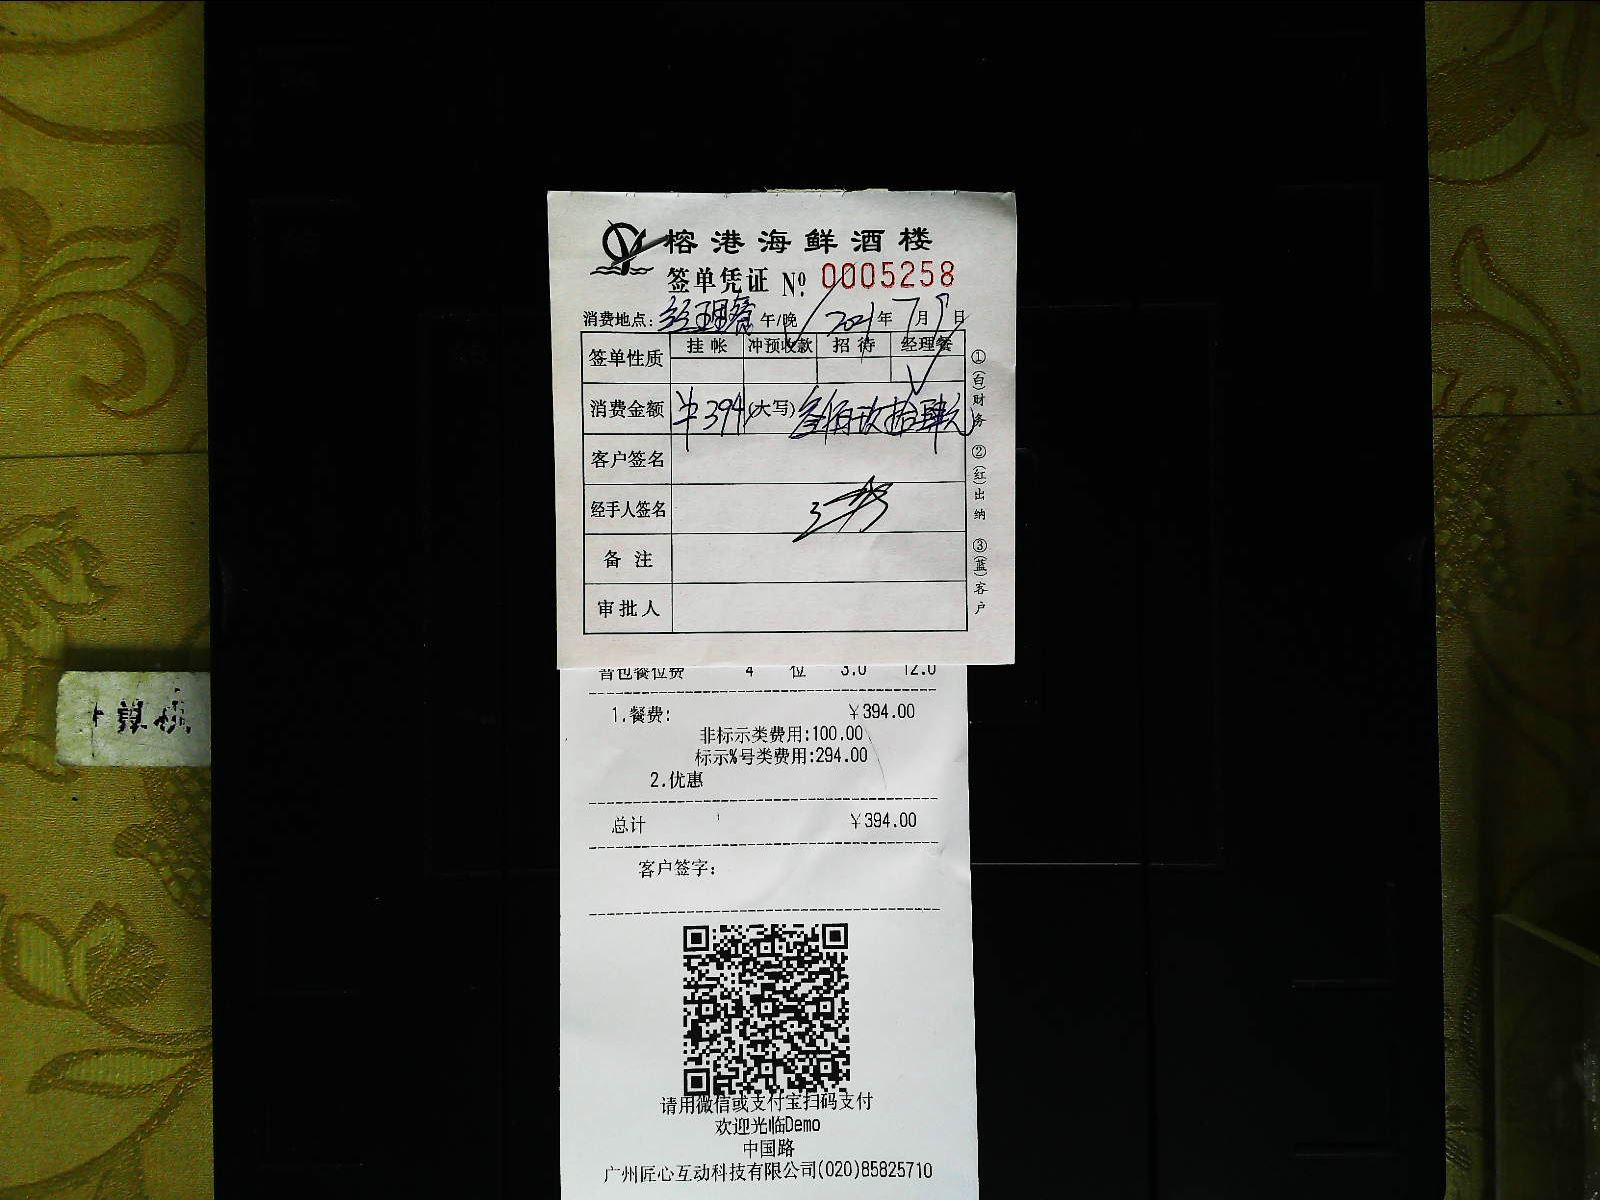 榕港海鲜酒楼
签单凭证 Nº. 0005258
消费地点: 经理餐 午/晚 2021年7月9日
签单性质 挂帐 冲预收款 招待 经理餐
消费金额 ¥394 (大写) 叁佰玖拾肆元
客户签名
经手人签名
备注
审批人
①(白)财务 ②(红)出纳 ③(蓝)客户
餐位费 4 位 3.0 12.0
1.餐费: ¥394.00
非标示类费用:100.00
标示%号类费用:294.00
2.优惠
总计 ¥394.00
客户签字:
请用微信或支付宝扫码支付
欢迎光临Demo
中国路
广州匠心互动科技有限公司(020)85825710